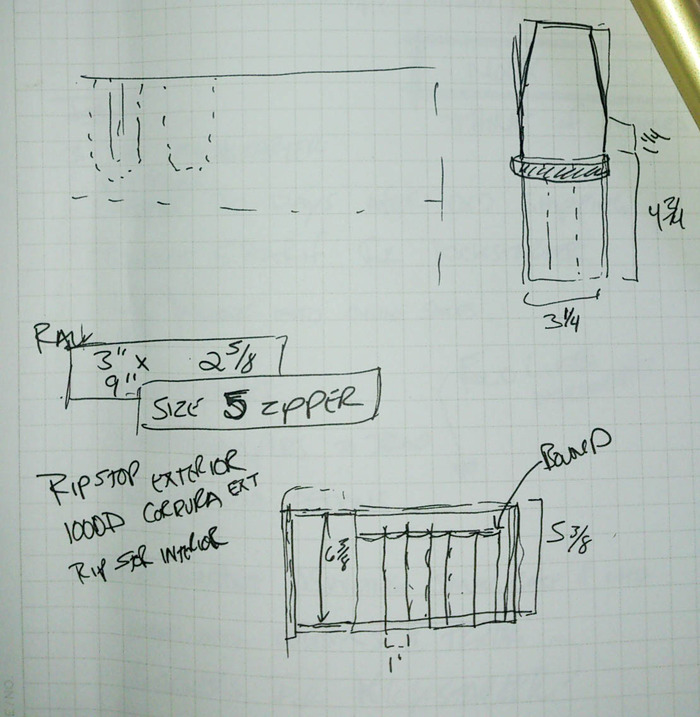 1 1/4
4 3/4
3 1/4
RAW
3" x 2 5/8
9"
SIZE 5 ZIPPER
RIPSTOP EXTERIOR
1000D CORDURA EXT
RIP STOP INTERIOR
BOUND
6 3/8
5 3/8
1"